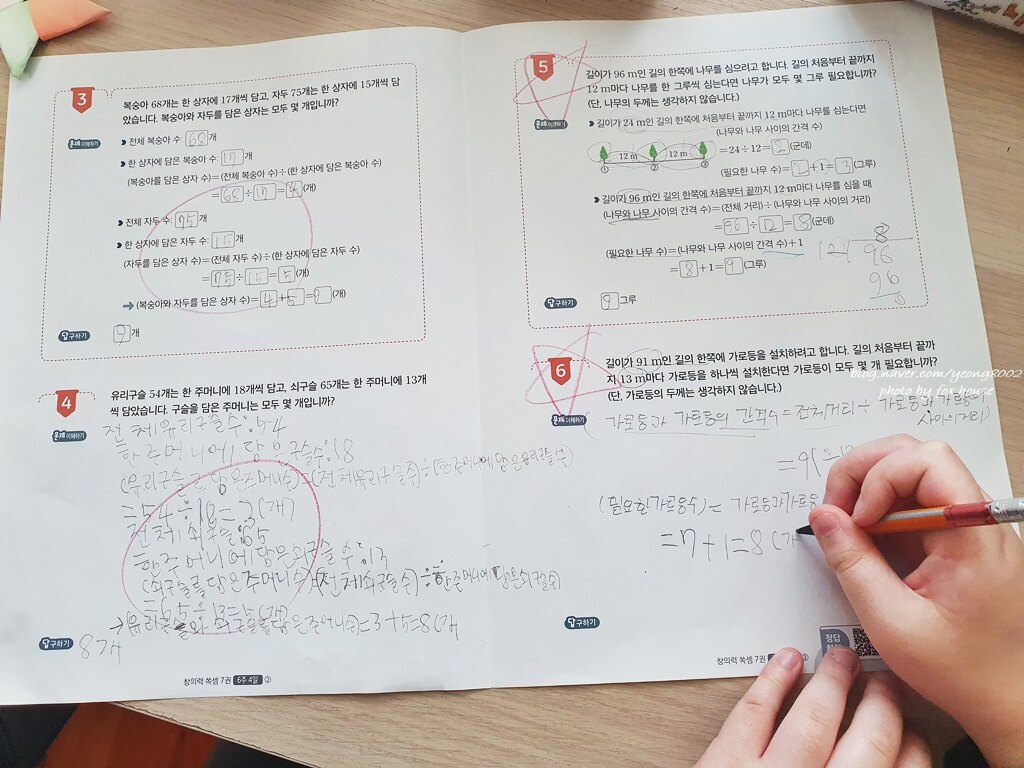 3
복숭아 68개는 한 상자에 17개씩 담고, 자두 75개는 한 상자에 15개씩 담
았습니다. 복숭아와 자두를 담은 상자는 모두 몇 개입니까?
문제 이해하기
전체 복숭아 수: 68 개
한 상자에 담은 복숭아 수: 17 개
(복숭아를 담은 상자 수)=(전체 복숭아 수)÷(한 상자에 담은 복숭아 수)
= 68 ÷ 17 = 4 (개)
전체 자두 수: 75 개
한 상자에 담은 자두 수: 15 개
(자두를 담은 상자 수)=(전체 자두 수)÷(한 상자에 담은 자두 수)
= 75 ÷ 15 = 5 (개)
➔ (복숭아와 자두를 담은 상자 수)= 4 + 5 = 9 (개)
답 구하기
9 개
4
유리구슬 54개는 한 주머니에 18개씩 담고, 쇠구슬 65개는 한 주머니에 13개
씩 담았습니다. 구슬을 담은 주머니는 모두 몇 개입니까?
문제 이해하기
전체유리구슬수:54
한주머니에 담은구슬수:18
(유리구슬을 담은주머니수)=(전체유리구슬수)÷(한주머니에 담은유리구슬수)
=54÷18=3(개)
전체 쇠구슬:65
한주머니에담은쇠구슬수:13
(쇠구슬을담은주머니수)=(전체쇠구슬수)÷한주머니에 담은쇠구슬수)
=65÷13=5(개)
→(유리구슬과 쇠구슬을담은주머니수)=3+5=8(개
답 구하기
8개
창의력 쑥셈 7권 6주 4일 ②
5
길이가 96 m인 길의 한쪽에 나무를 심으려고 합니다. 길의 처음부터 끝까지
12 m마다 나무를 한 그루씩 심는다면 나무가 모두 몇 그루 필요합니까?
(단, 나무의 두께는 생각하지 않습니다.)
문제 이해하기
길이가 24 m인 길의 한쪽에 처음부터 끝까지 12 m마다 나무를 심는다면
(나무와 나무 사이의 간격 수)
12 m 12 m
① ② ③
=24÷12= 2 (군데)
(필요한 나무 수)= 2 +1= 3 (그루)
길이가 96 m인 길의 한쪽에 처음부터 끝까지 12 m마다 나무를 심을 때
(나무와 나무 사이의 간격 수)=(전체 거리)÷(나무와 나무 사이의 거리)
= 96 ÷ 12 = 8 (군데)
(필요한 나무 수)=(나무와 나무 사이의 간격 수)+1
= 8 +1= 9 (그루)
8
12 96
96
0
답 구하기
9 그루
6
길이가 91 m인 길의 한쪽에 가로등을 설치하려고 합니다. 길의 처음부터 끝까
지 13 m마다 가로등을 하나씩 설치한다면 가로등이 모두 몇 개 필요합니까?
(단, 가로등의 두께는 생각하지 않습니다.)
blog.naver.com/yeong8002
photo by fox house
문제 이해하기
(가로등과 가로등의 간격수=전체거리÷가로등과 가로등
사이의거리)
=91÷13
(필요한가로등수)= 가로등과가로등
=7+1=8(개
답 구하기
창의력 쑥셈 7권
③
정답